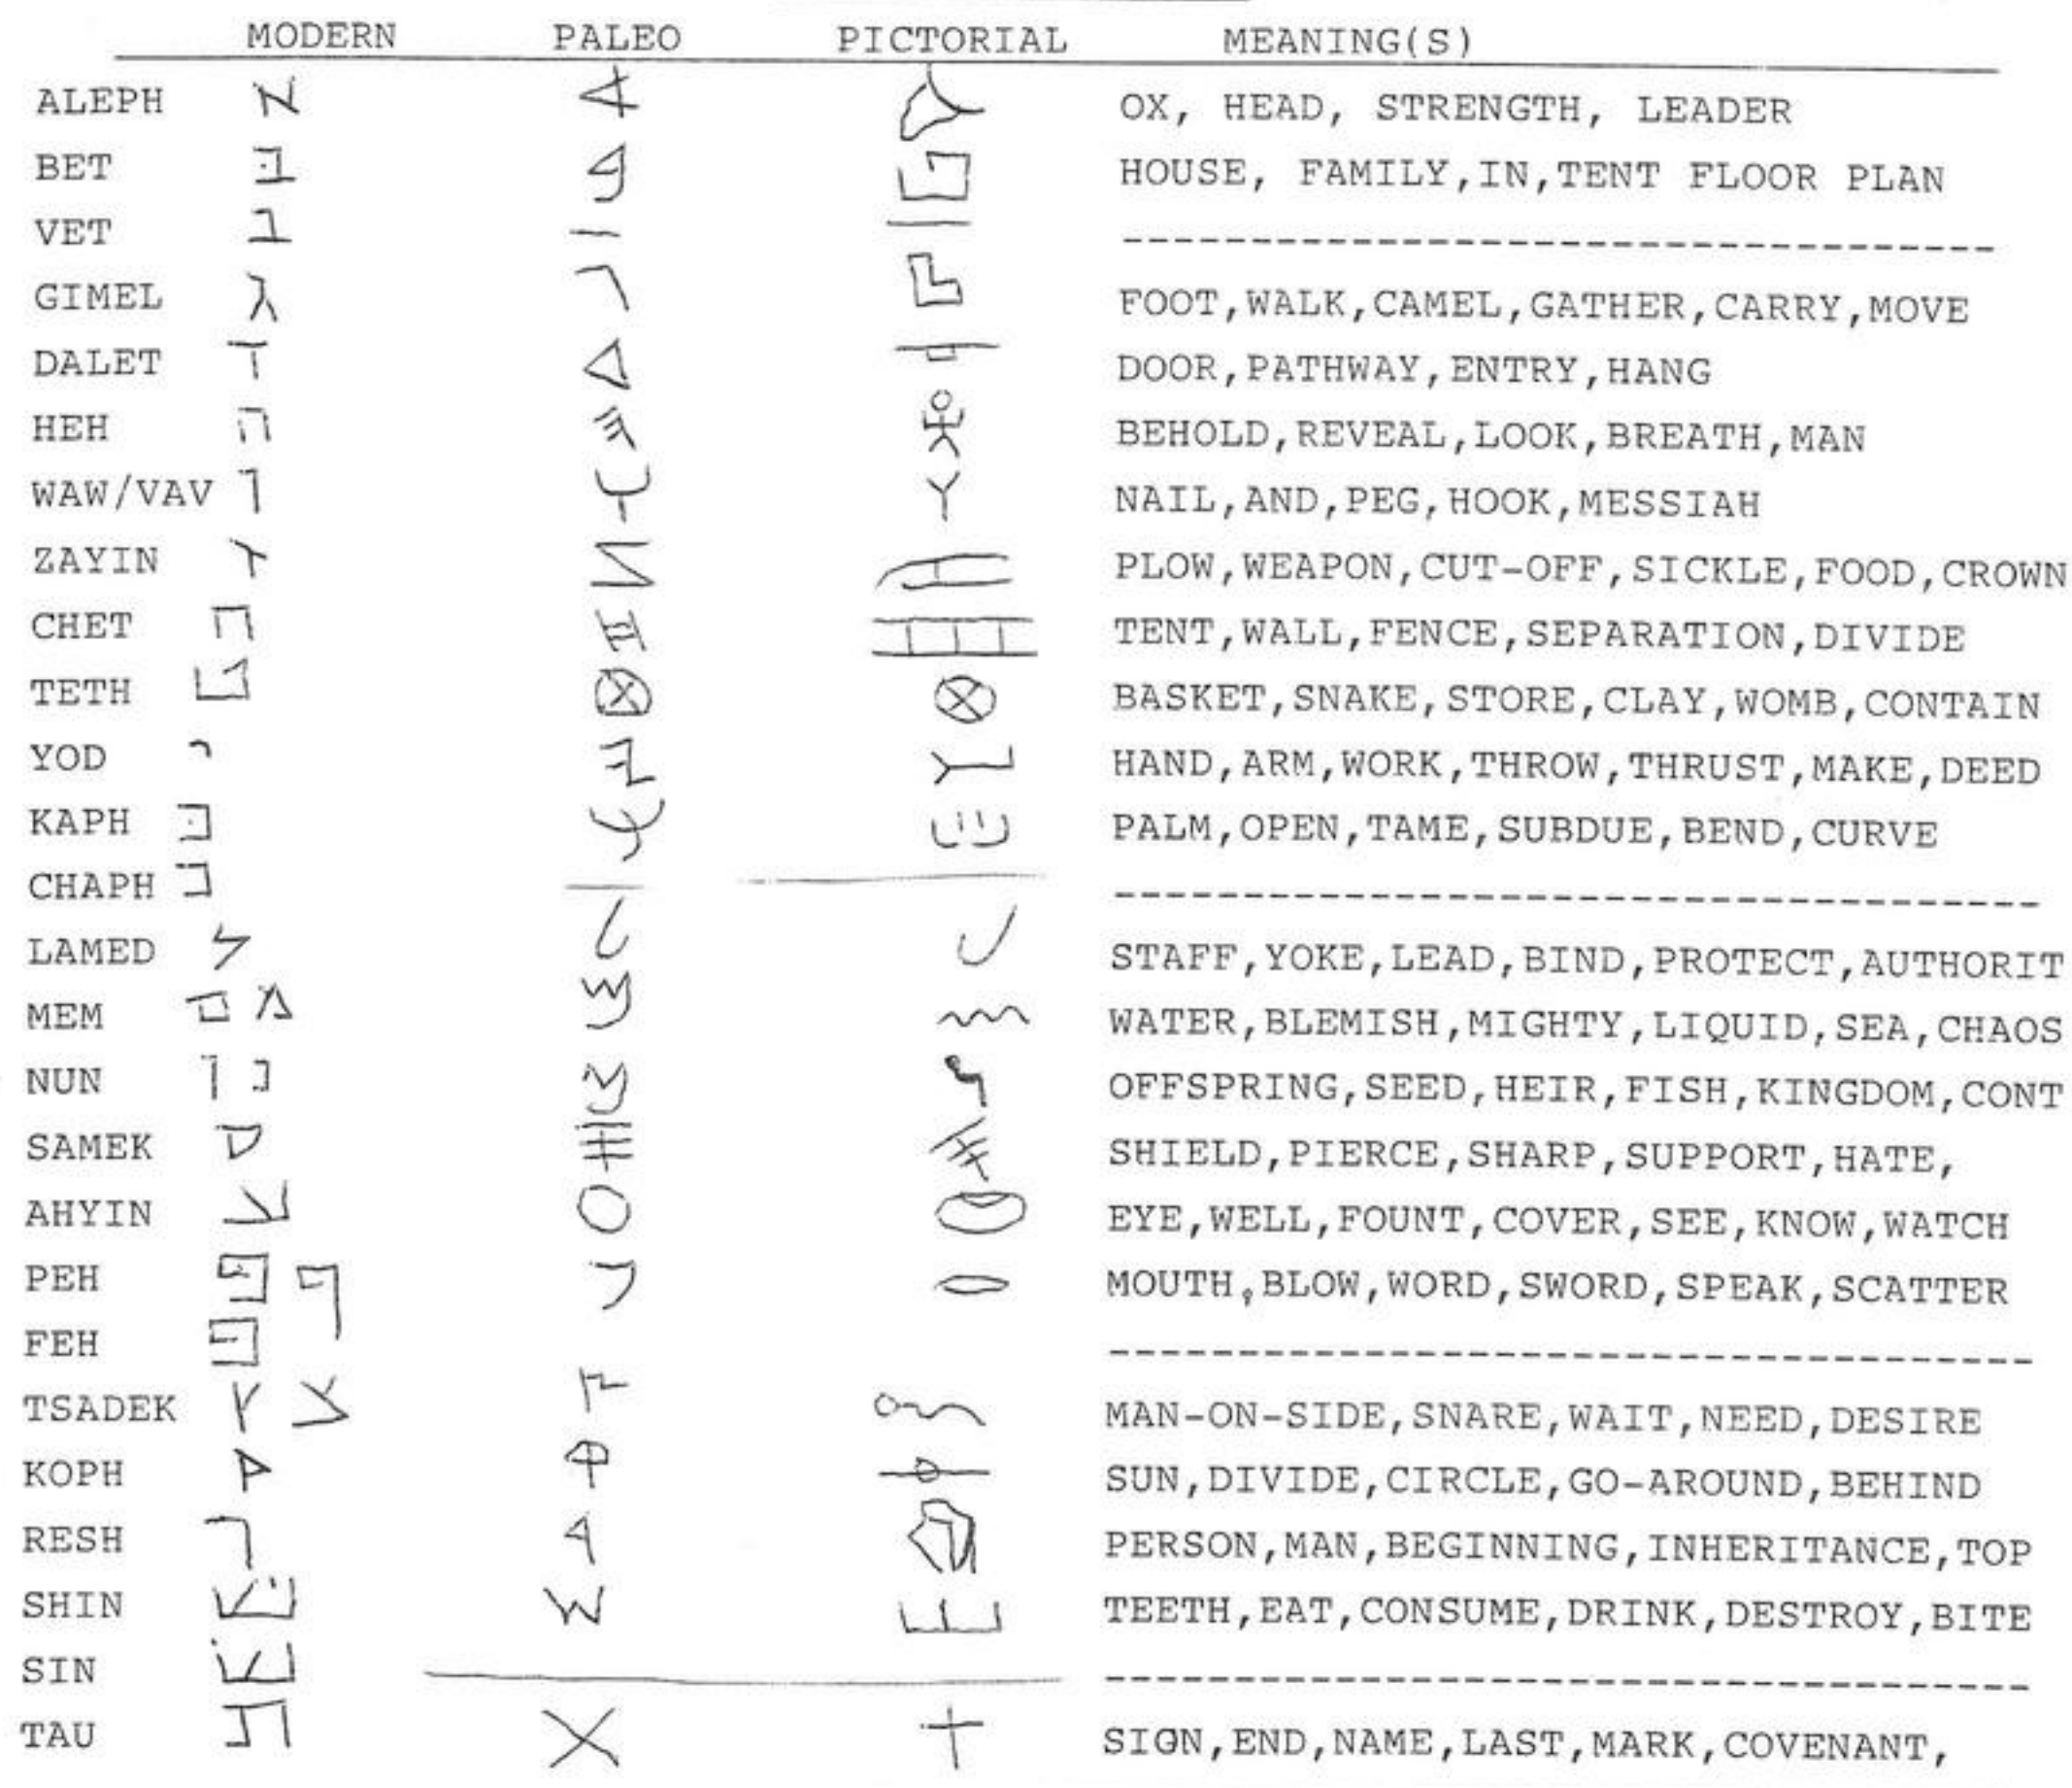 MODERN PALEO PICTORIAL MEANING(S)
ALEPH א 𐤀 OX, HEAD, STRENGTH, LEADER
BET בּ 𐤁 HOUSE, FAMILY,IN,TENT FLOOR PLAN
VET ב
GIMEL ג 𐤂 FOOT,WALK,CAMEL,GATHER,CARRY,MOVE
DALET ד 𐤃 DOOR,PATHWAY,ENTRY,HANG
HEH ה 𐤄 BEHOLD,REVEAL,LOOK,BREATH,MAN
WAW/VAV ו 𐤅 NAIL,AND,PEG,HOOK,MESSIAH
ZAYIN ז 𐤆 PLOW,WEAPON,CUT-OFF,SICKLE,FOOD,CROWN
CHET ח 𐤇 TENT,WALL,FENCE,SEPARATION,DIVIDE
TETH ט 𐤈 BASKET,SNAKE,STORE,CLAY,WOMB,CONTAIN
YOD י 𐤉 HAND,ARM,WORK,THROW,THRUST,MAKE,DEED
KAPH כּ 𐤊 PALM,OPEN,TAME,SUBDUE,BEND,CURVE
CHAPH כ
LAMED ל 𐤋 STAFF,YOKE,LEAD,BIND,PROTECT,AUTHORIT
MEM ם מ 𐤌 WATER,BLEMISH,MIGHTY,LIQUID,SEA,CHAOS
NUN ן נ 𐤍 OFFSPRING,SEED,HEIR,FISH,KINGDOM,CONT
SAMEK ס 𐤎 SHIELD,PIERCE,SHARP,SUPPORT,HATE,
AHYIN ע 𐤏 EYE,WELL,FOUNT,COVER,SEE,KNOW,WATCH
PEH פּ ף 𐤐 MOUTH,BLOW,WORD,SWORD,SPEAK,SCATTER
FEH פ
TSADEK ץ צ 𐤑 MAN-ON-SIDE,SNARE,WAIT,NEED,DESIRE
KOPH ק 𐤒 SUN,DIVIDE,CIRCLE,GO-AROUND,BEHIND
RESH ר 𐤓 PERSON,MAN,BEGINNING,INHERITANCE,TOP
SHIN שׁ 𐤔 TEETH,EAT,CONSUME,DRINK,DESTROY,BITE
SIN שׂ
TAU ת 𐤕 SIGN,END,NAME,LAST,MARK,COVENANT,